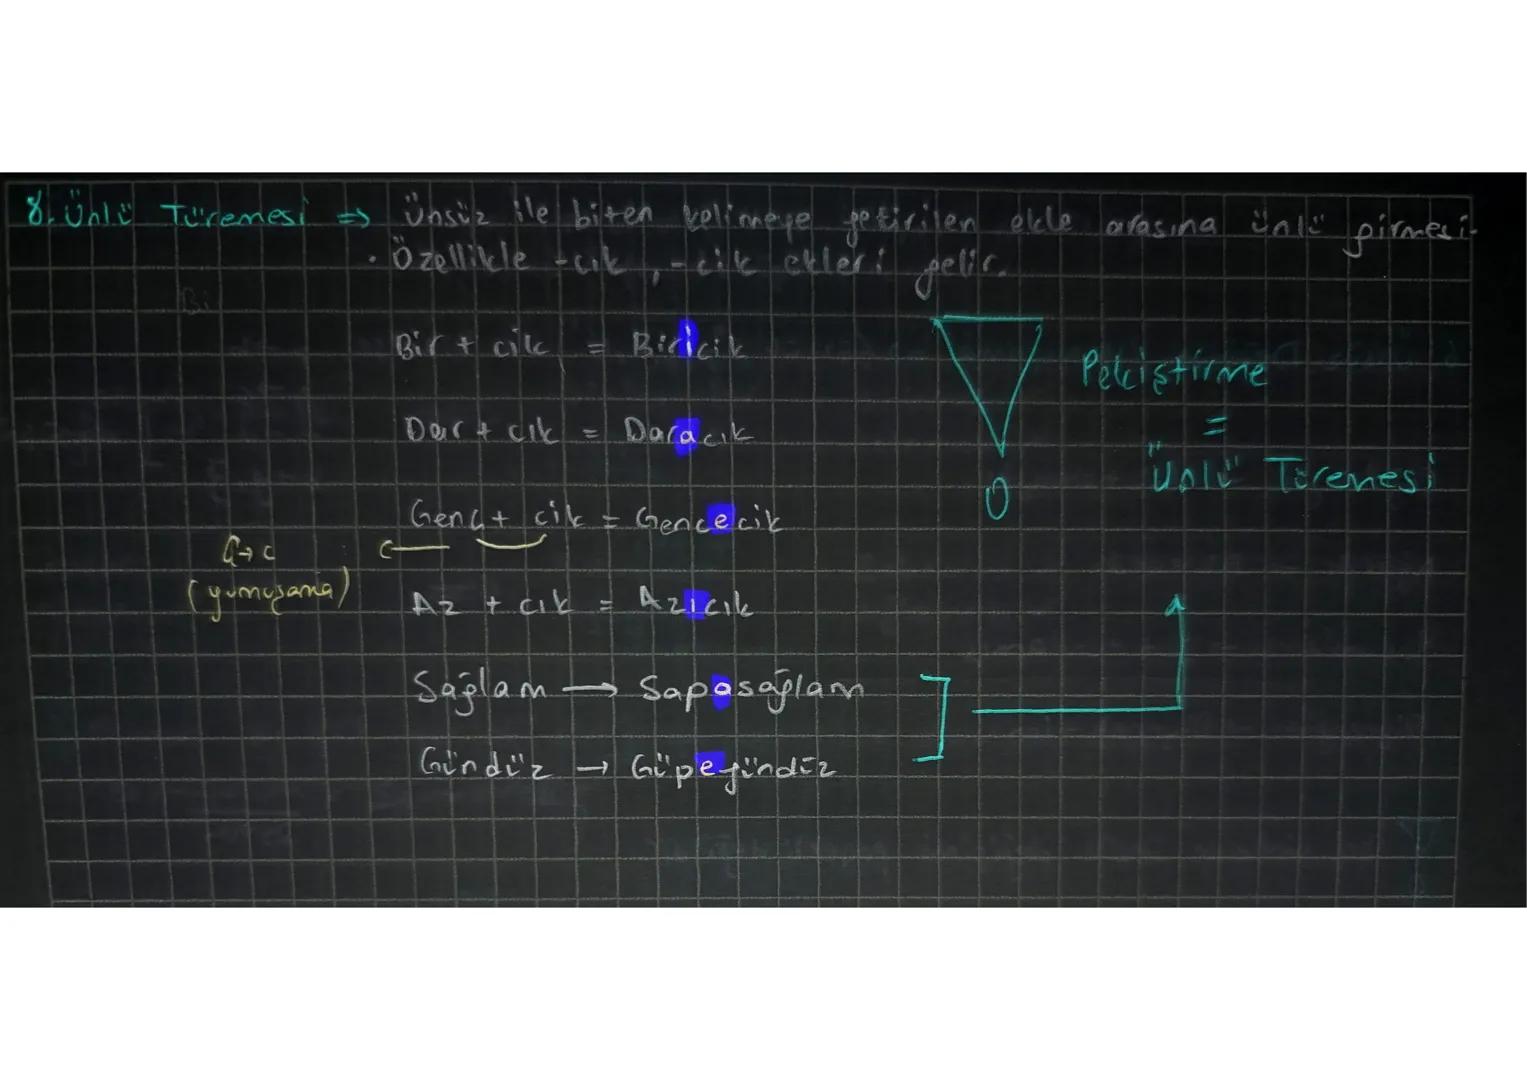 8. Ünlü Türemesi ⇒ Ünsüz ile biten kelimeye getirilen ekle arasına ünlü girmesi.
• Özellikle -cık, -cik ekleri gelir.
Bir + cik = Biricik
Dar + cık = Daracık
Genç + cik = Gencecik
ç→c
(yumuşama)
Az + cık = Azıcık
Sağlam → Sapasağlam
Gündüz → Güpegündüz
Pekiştirme
=
Ünlü Türemesi